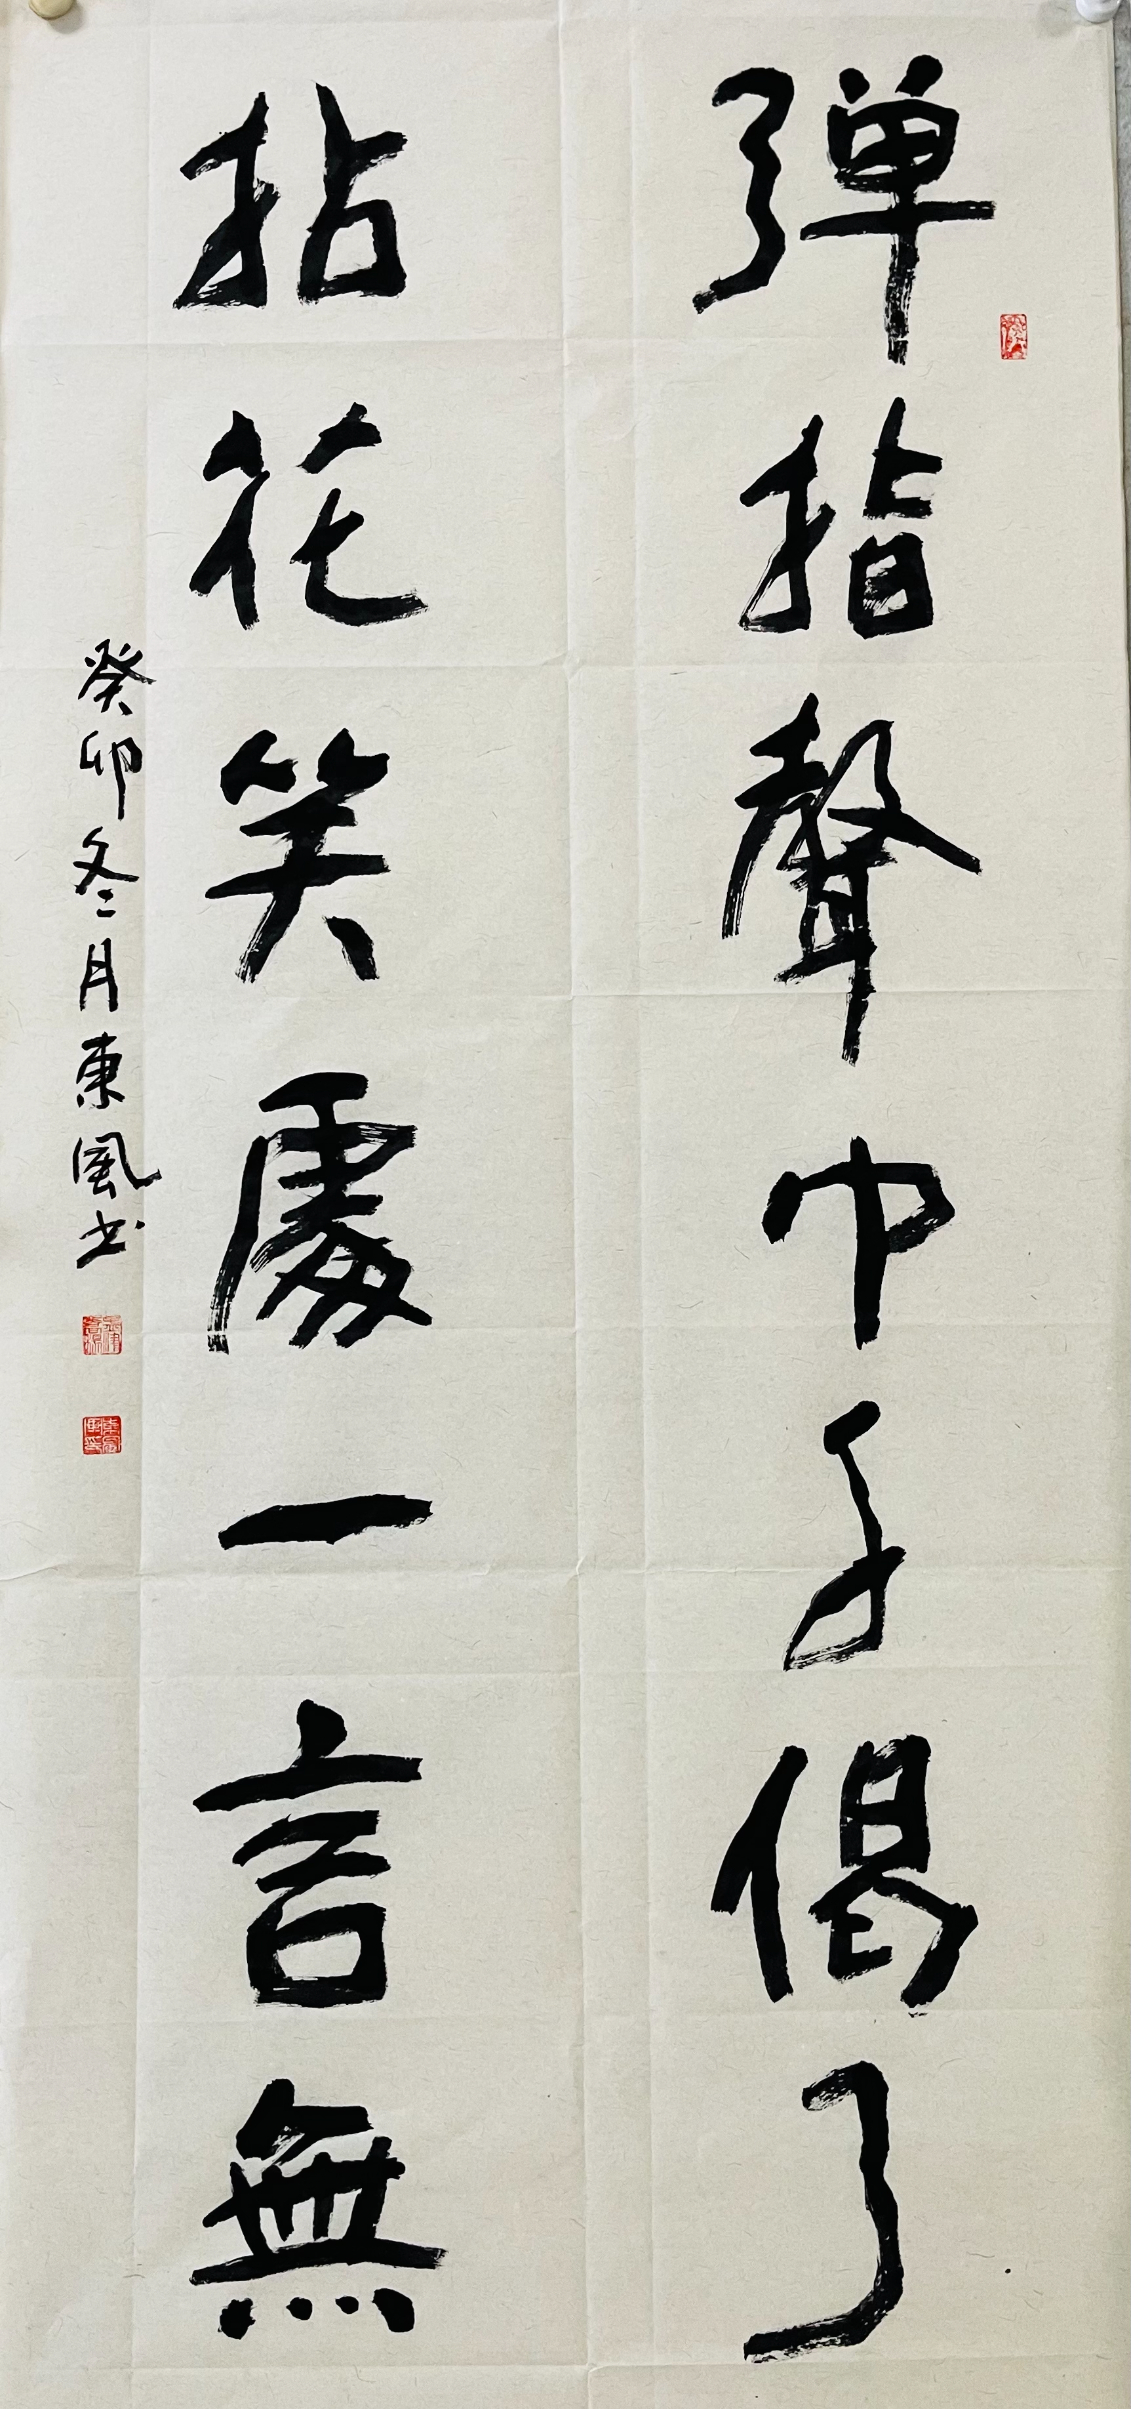 弾指聲中千偈了
拈花笑處一言無
癸卯冬月東風书